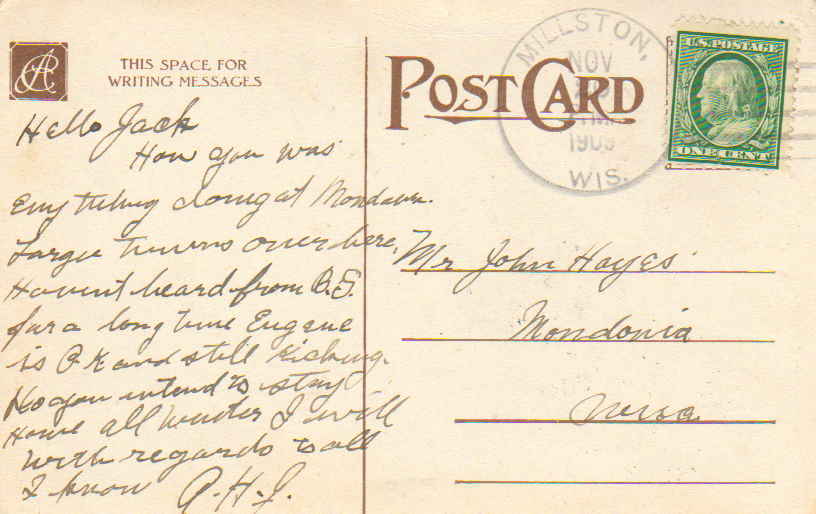 THIS SPACE FOR
WRITING MESSAGES
POST CARD
MILLSTON,
NOV
1909
WIS.
U.S. POSTAGE
ONE CENT
Hello Jack
How you was
Eny thing doing at
Large towns over here,
Havent heard from B.S.
for a long time Eugene
is O.K and still kicking.
you intend to stay
Home all winter I will
With regards to all
I know A.H.J.
Mr John Hayes
Mondovia